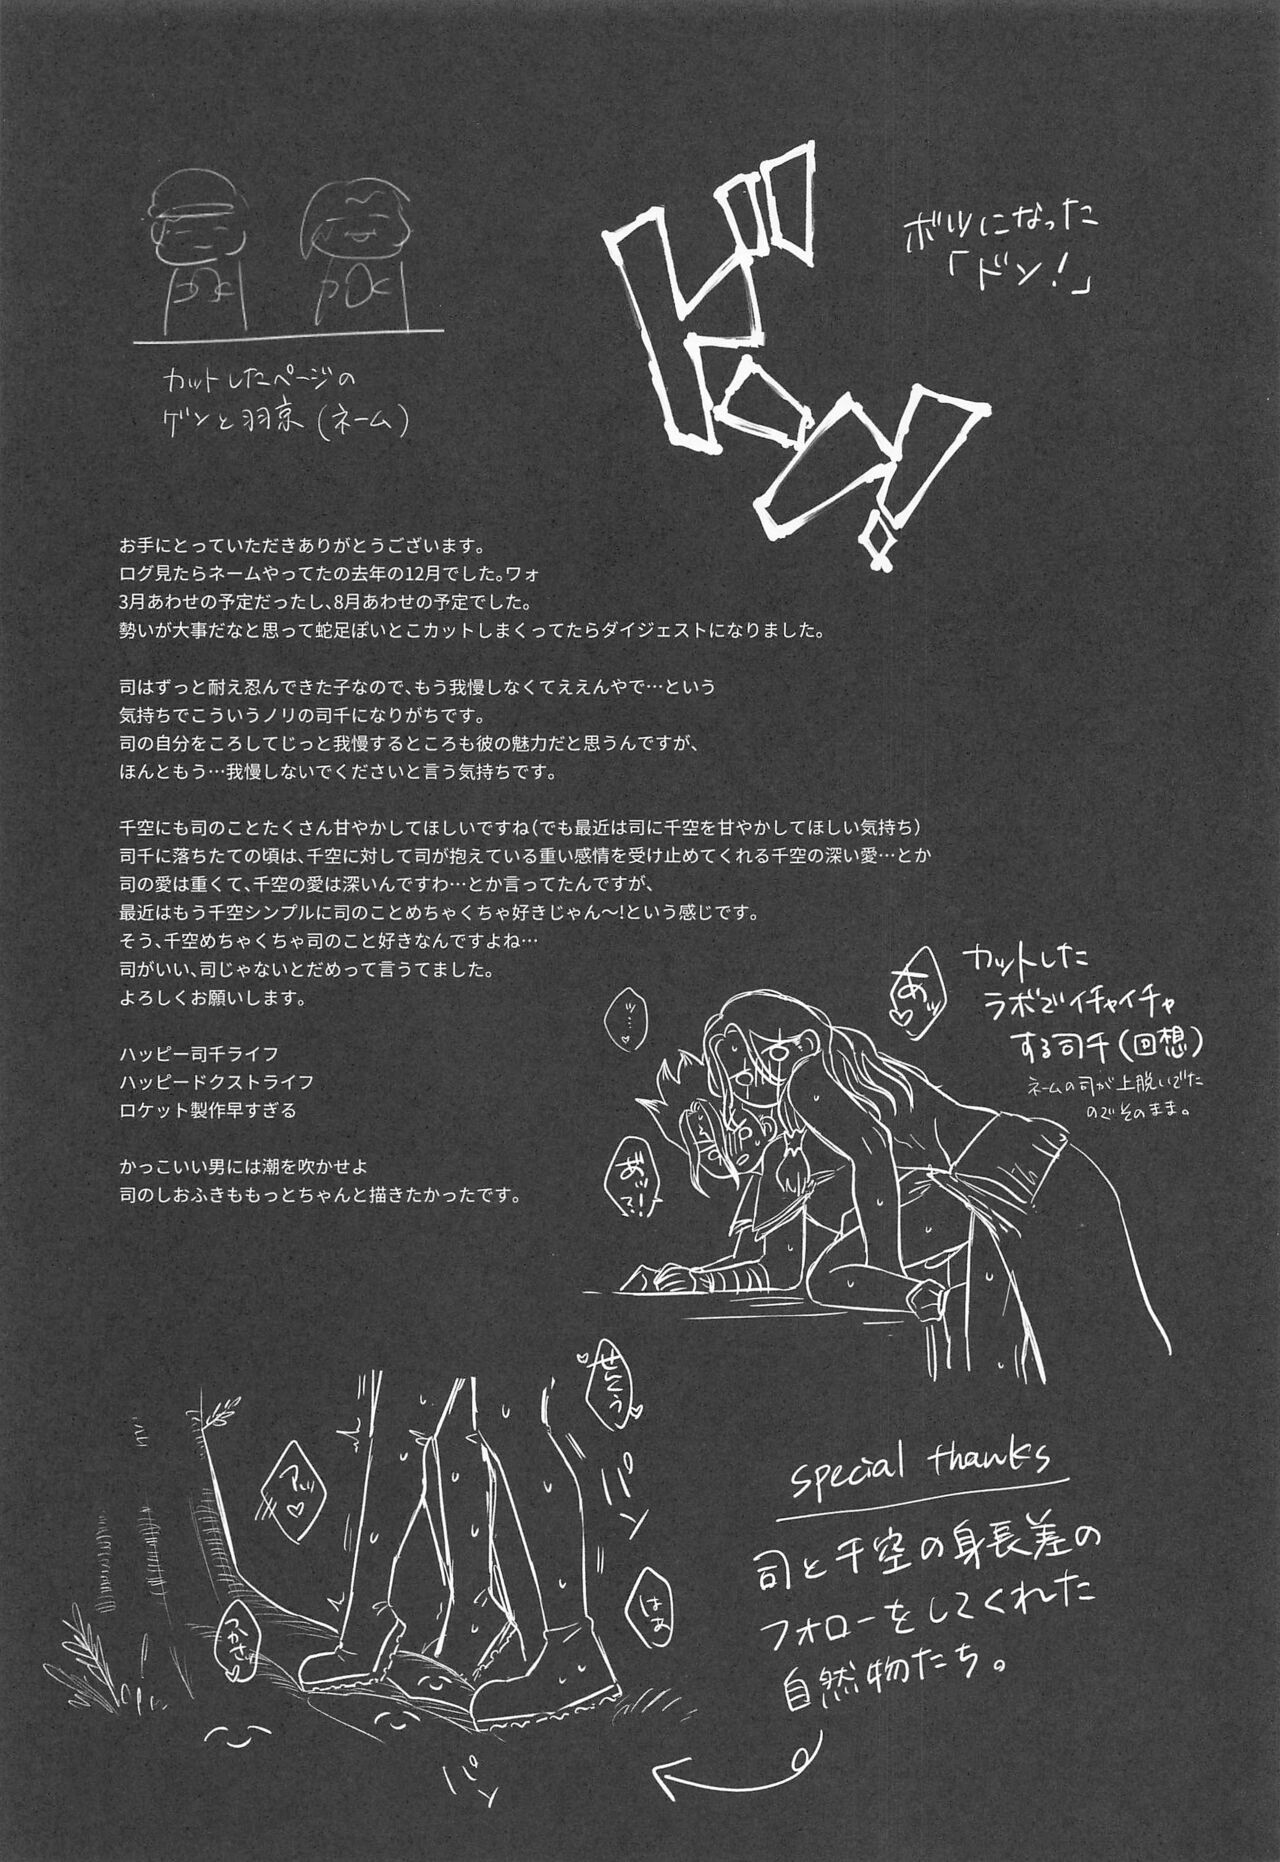 ボツになった
「ドン!」
ドーン!
カットしたページの
ゲンと羽京(ネーム)
お手にとっていただきありがとうございます。
ログ見たらネームやってたの去年の12月でした。ワォ
3月あわせの予定だったし、8月あわせの予定でした。
勢いが大事だなと思って蛇足ぽいとこカットしまくってたらダイジェストになりました。
司はずっと耐え忍んできた子なので、もう我慢しなくてええんやで…という
気持ちでこういうノリの司千になりがちです。
司の自分をころしてじっと我慢するところも彼の魅力だと思うんですが、
ほんともう…我慢しないでくださいと言う気持ちです。
千空にも司のことたくさん甘やかしてほしいですね(でも最近は司に千空を甘やかしてほしい気持ち)
司千に落ちたての頃は、千空に対して司が抱えている重い感情を受け止めてくれる千空の深い愛…とか
司の愛は重くて、千空の愛は深いんですわ…とか言ってたんですが、
最近はもう千空シンプルに司のことめちゃくちゃ好きじゃん〜!という感じです。
そう、千空めちゃくちゃ司のこと好きなんですよね…
司がいい、司じゃないとだめって言うてました。
よろしくお願いします。
ハッピー司千ライフ
ハッピードクストライフ
ロケット製作早すぎる
かっこいい男には潮を吹かせよ
司のしおふきももっとちゃんと描きたかったです。
カットした
ラボでイチャイチャ
する司千(回想)
ネームの司が上脱いでた
のでそのまま。
あッ♡
ッ…♡
せんくう♡
パン
アッ♡
はあ
つかさ♡
パン
special thanks
司と千空の身長差の
フォローをしてくれた
自然物たち。